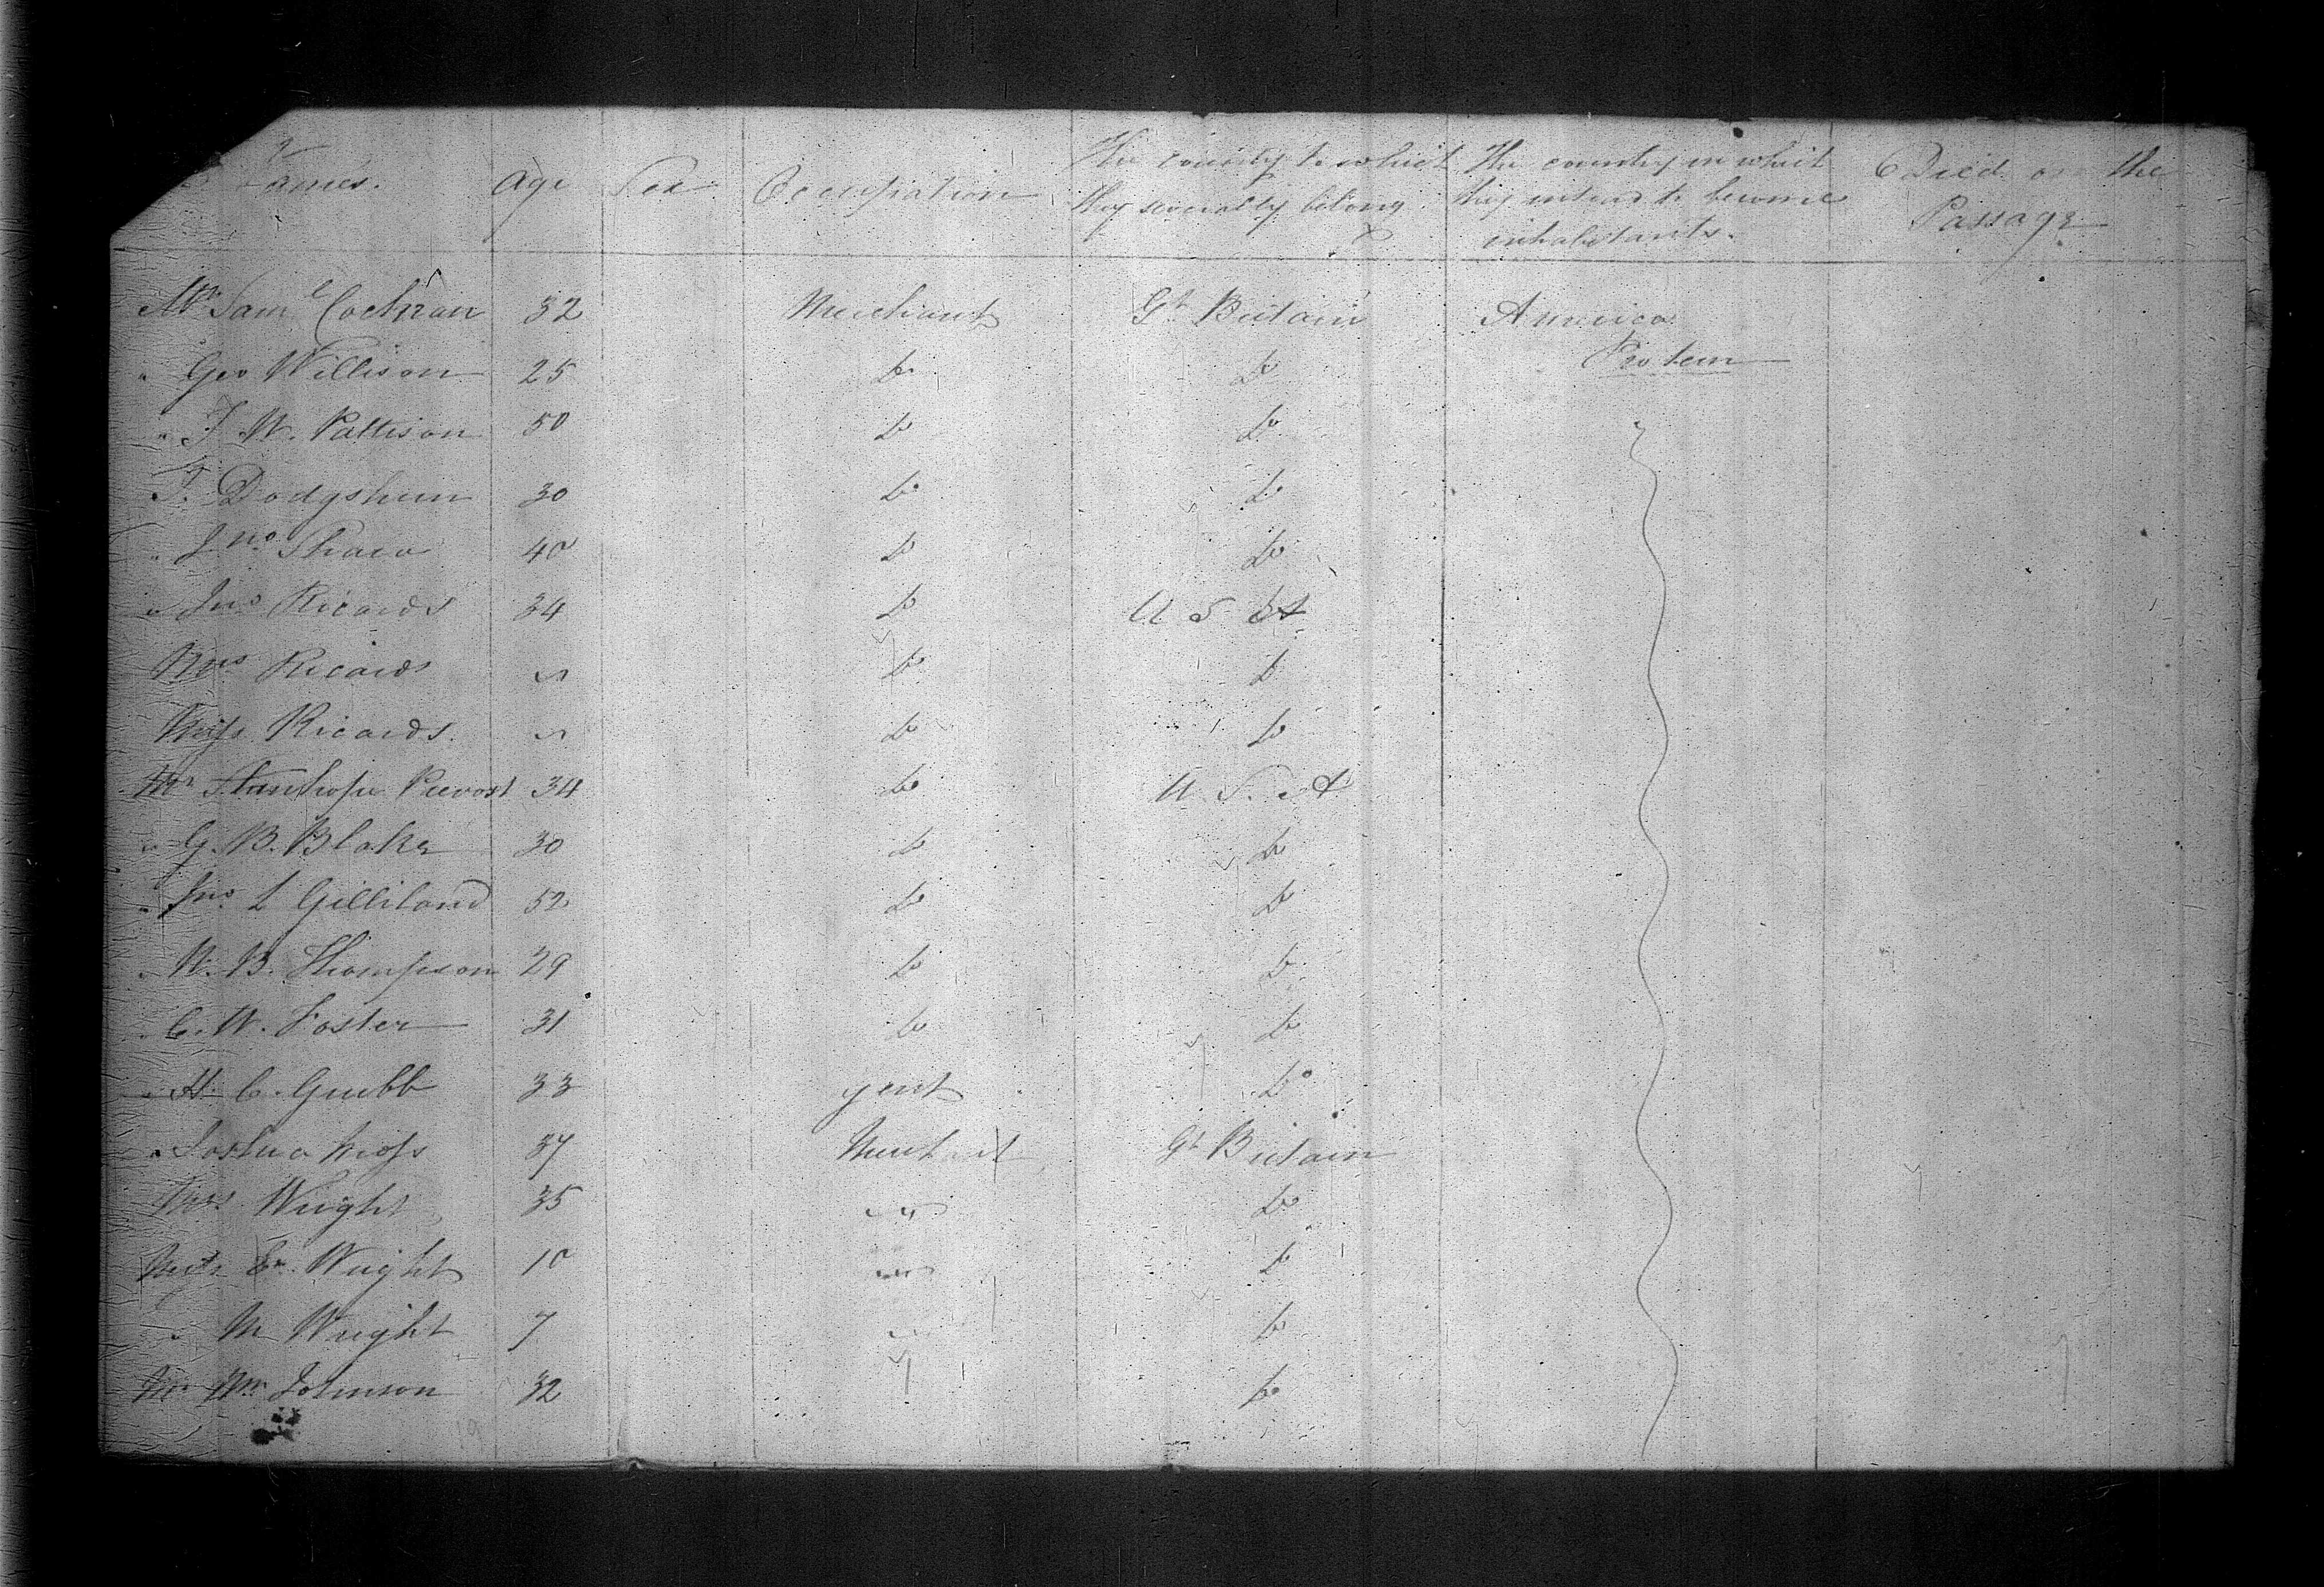 Names. Age Sex Occupation The country to which they severally belong The country in which they intend to become inhabitants. Died on the Passage
Mr Saml Cochran 32 Merchant Gt Britain America
" Geo Willison 25 Do Do Protem
" J W. Pattison 50 Do Do
F. Dodgshun 30 Do Do
" Jno Shaw 40 Do Do
" Jno Ricards 34 Do U S A
Mrs Ricards " Do Do
Miss Ricards. " Do Do
Mr Stanhope Prevost 34 Do U. S. A
" G. B. Blake 30 Do Do
" Jno L Gilliland 52 Do Do
" W. B. Thompson 29 Do Do
" C. W. Foster 31 Do Do
" H. C. Grubb 33 gent Do
" Joshua 37 Merchant Gt Britain
Mrs Wright 35 " Do
Miss E. Wright 10 " Do
" M Wright 7 " Do
Mr Wm Johnson 32 Do
19